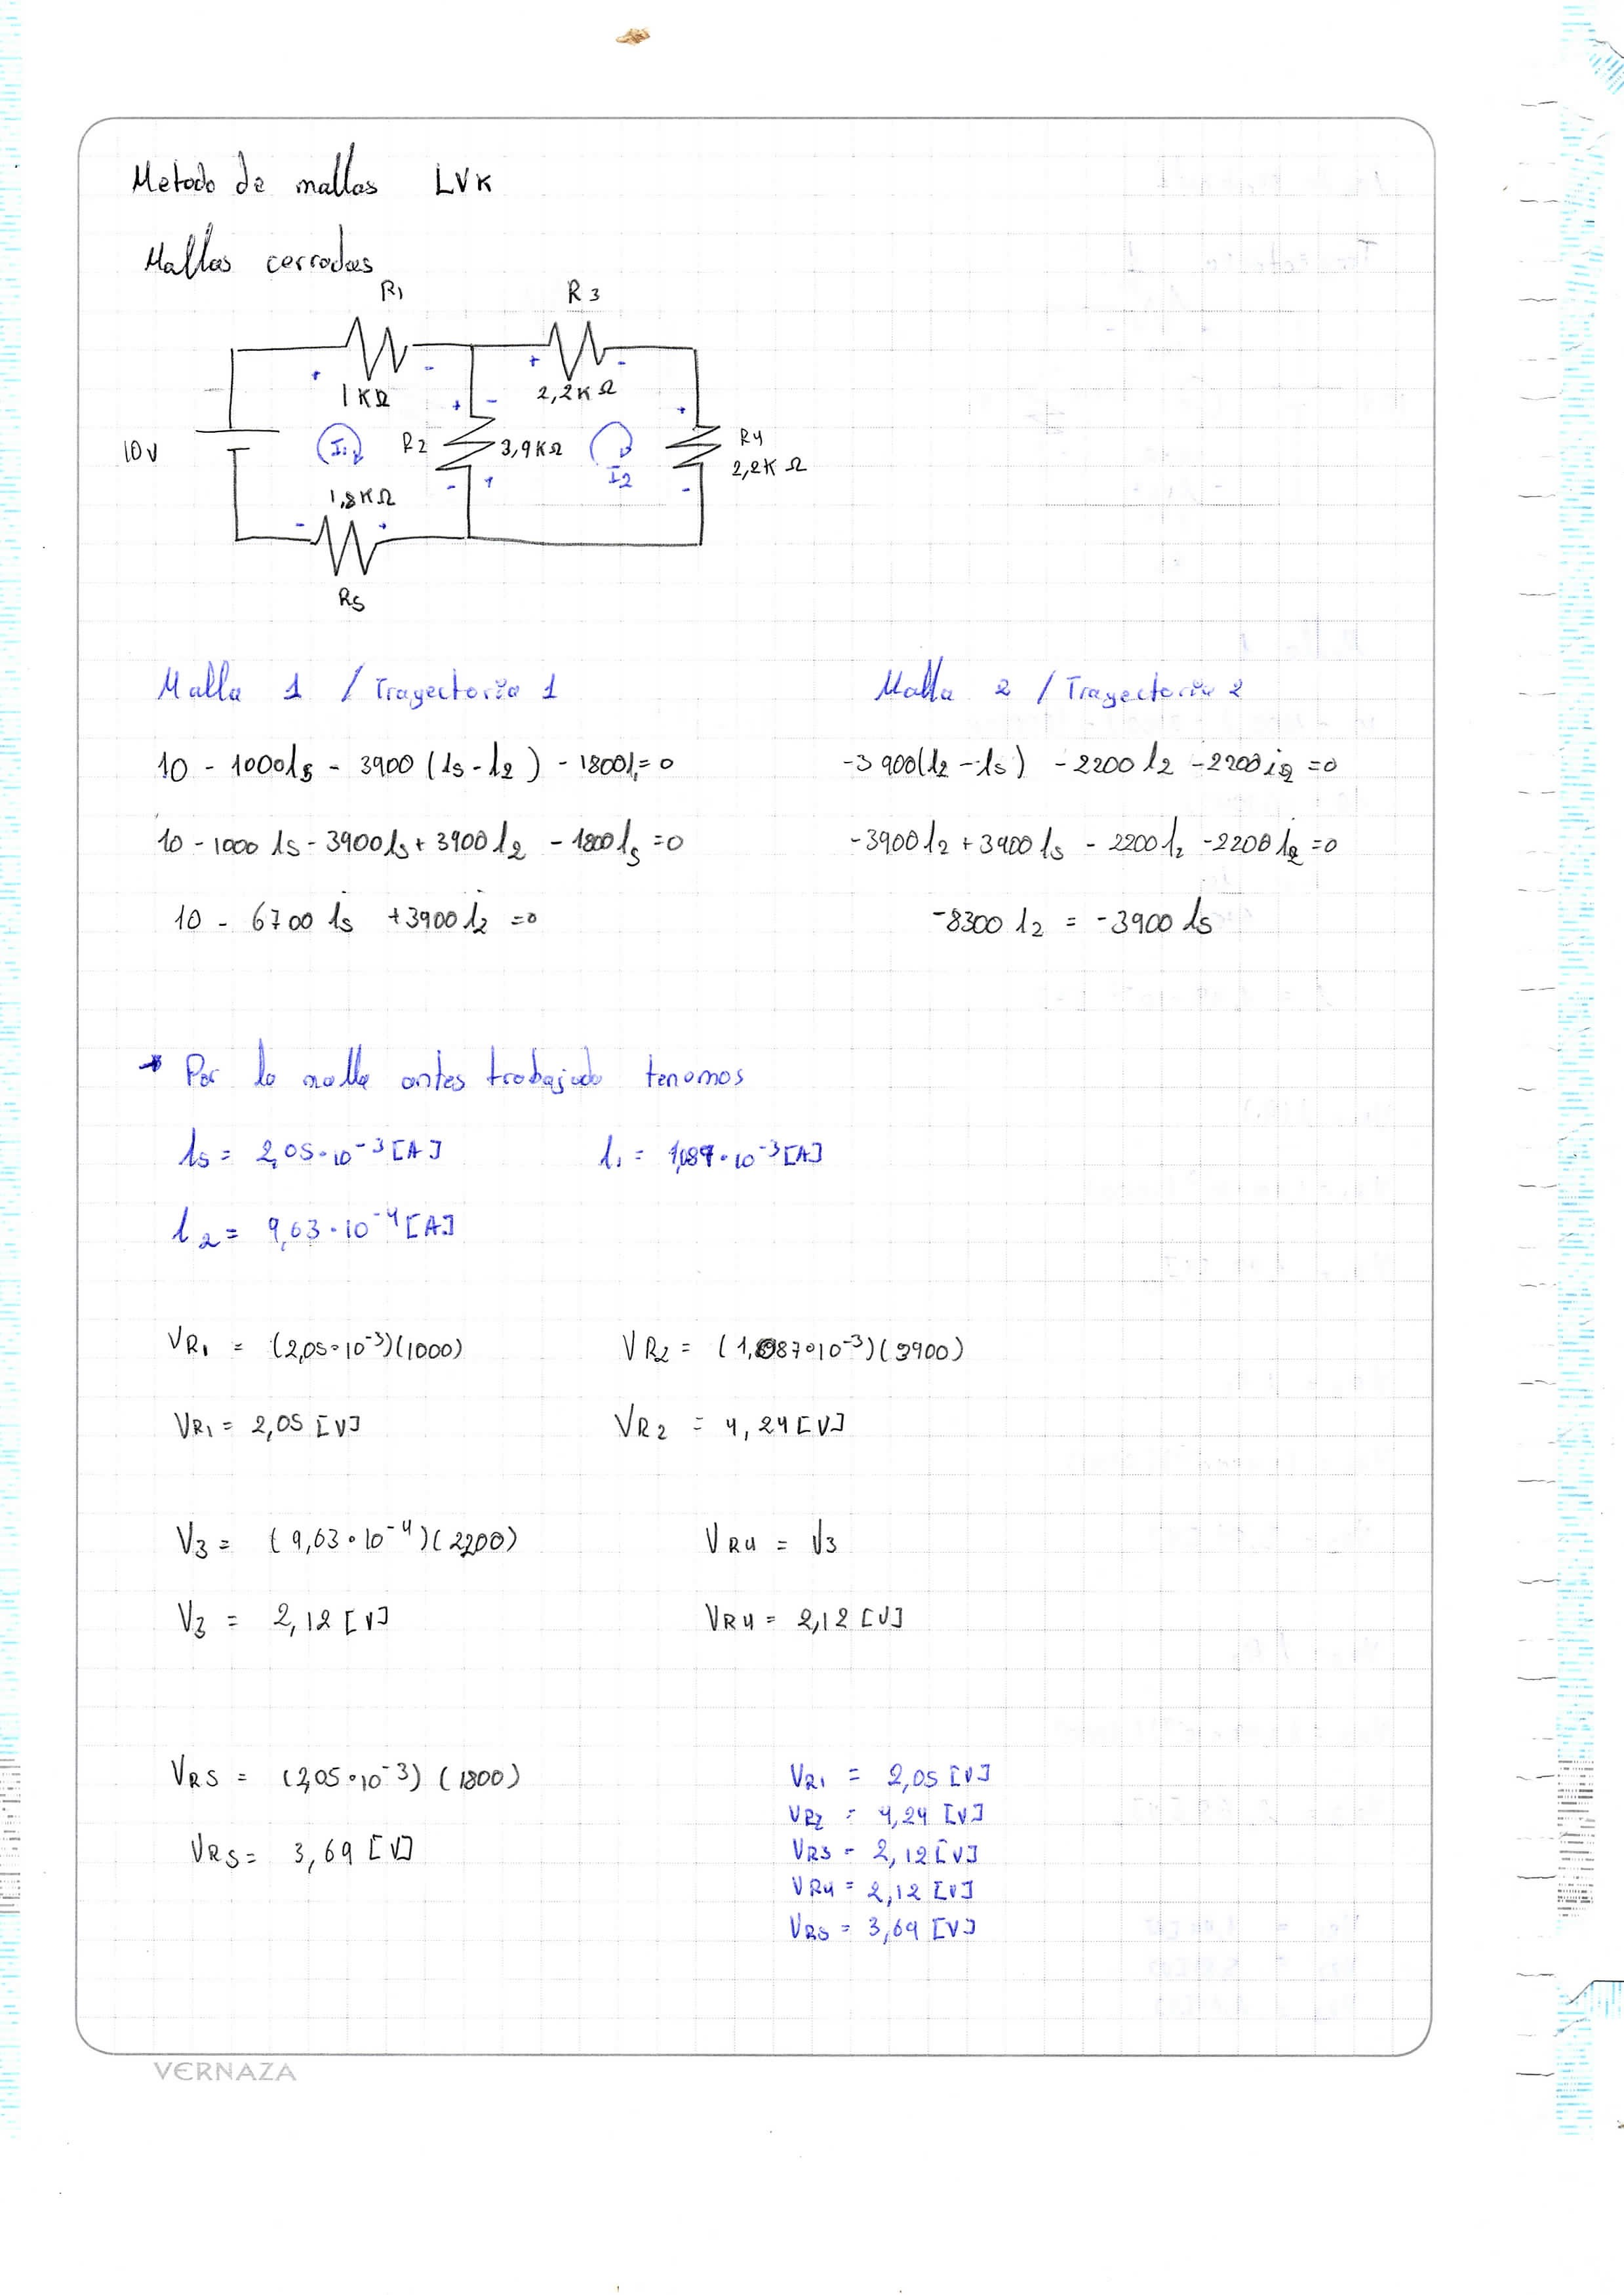 Metodo de mallas LVK
Mallas cerradas
R1 R3
1KΩ 2,2KΩ
10v I1 R2 3,9KΩ I2 R4
2,2KΩ
1,8KΩ
R5
Malla 1 / Trayectoria 1
10 - 1000 is - 3900 (is - i2) - 1800i1 = 0
10 - 1000 is - 3900 is + 3900 i2 - 1800 is = 0
10 - 6700 is + 3900 i2 = 0
Malla 2 / Trayectoria 2
-3900(i2 - is) - 2200 i2 - 2200 i2 = 0
-3900 i2 + 3900 is - 2200 i2 - 2200 i2 = 0
-8300 i2 = -3900 is
→ Por la malla antes trabajada tenemos
is = 2,05·10^-3 [A] i1 = 1,087·10^-3 [A]
i2 = 9,63·10^-4 [A]
VR1 = (2,05·10^-3)(1000) VR2 = (1,087·10^-3)(3900)
VR1 = 2,05 [V] VR2 = 4,24 [V]
V3 = (9,63·10^-4)(2200) VR4 = V3
V3 = 2,12 [V] VR4 = 2,12 [V]
VR5 = (2,05·10^-3) (1800)
VR5 = 3,69 [V]
VR1 = 2,05 [V]
VR2 = 4,24 [V]
VR3 = 2,12 [V]
VR4 = 2,12 [V]
VR5 = 3,69 [V]
VERNAZA